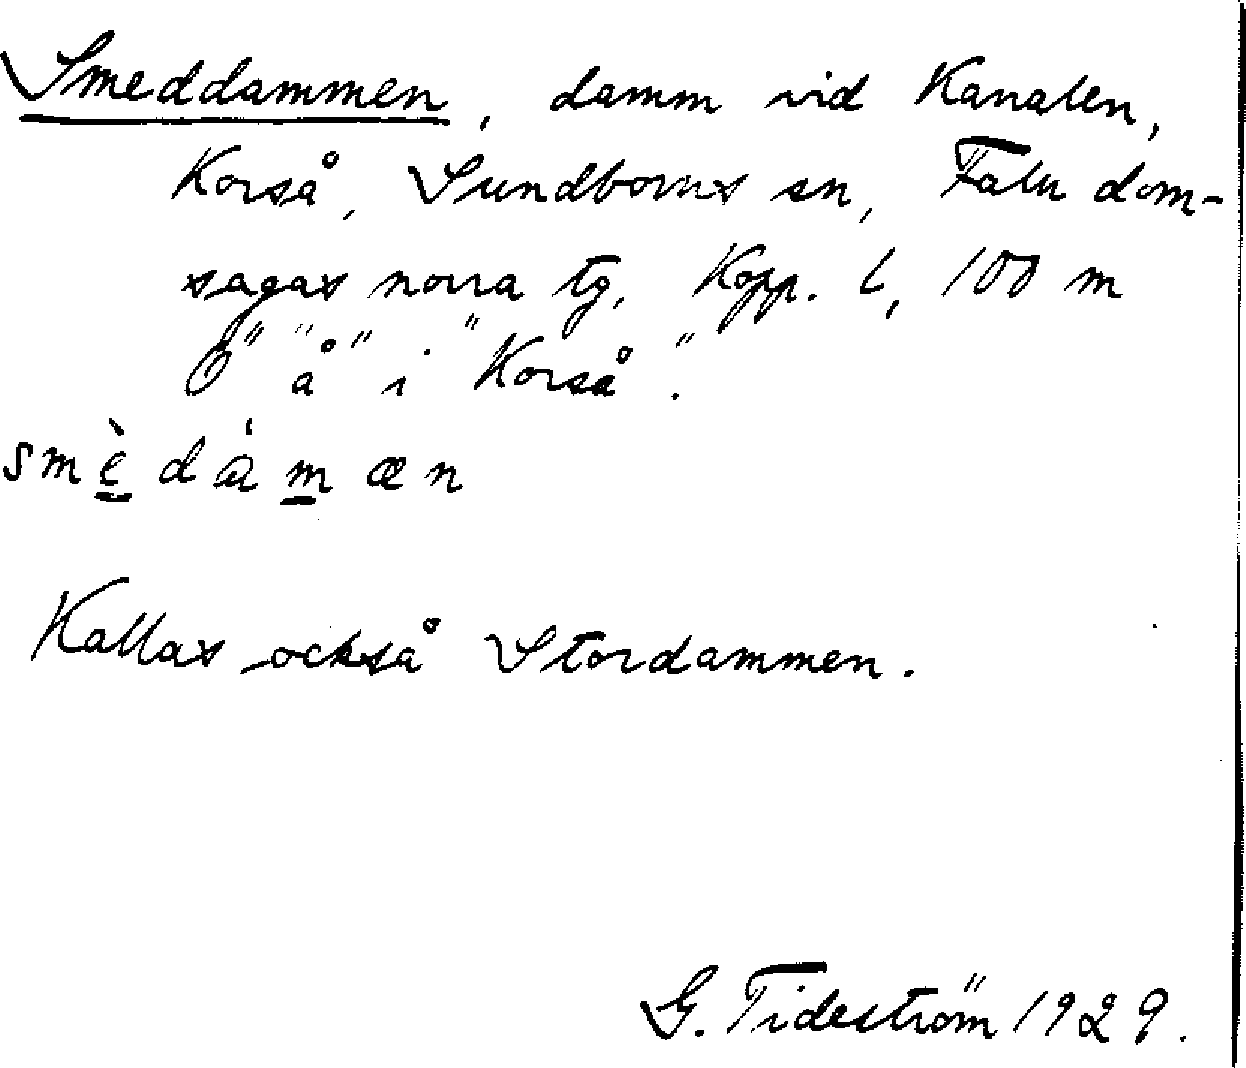 Smeddammen, damm vid Kanalen,
Korså, Sundborns sn, Falu dom-
sagas norra tg, Kopp. l, 100 m
Ö" "å" i "Korså".
smὲdàmæn
Kallas också Stordammen.
G. Tideström 1929.